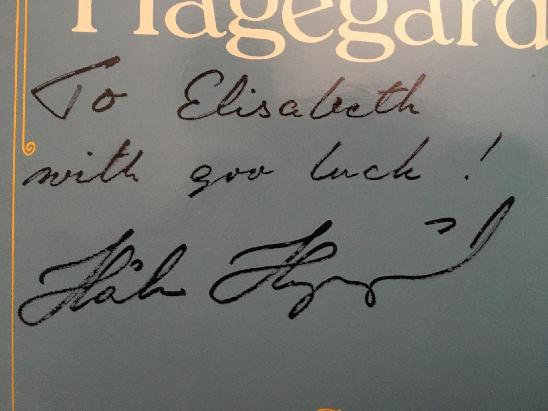 Hagegård
To Elisabeth
with goo luck !
Håkan Hagegård